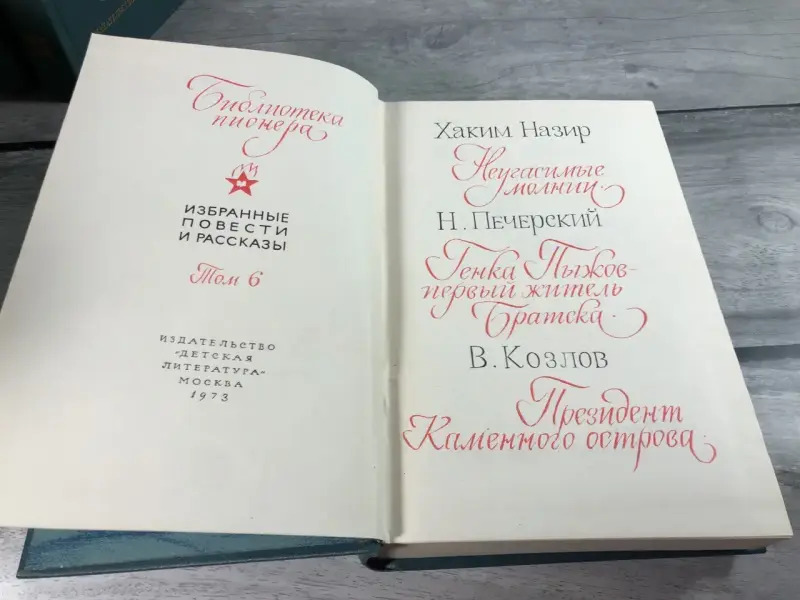 Библиотека
пионера
ИЗБРАННЫЕ
ПОВЕСТИ
И РАССКАЗЫ
Том 6
ИЗДАТЕЛЬСТВО
"ДЕТСКАЯ
ЛИТЕРАТУРА"
МОСКВА
1973
Хаким Назир
Неугасимые
молнии.
Н. Печерский
Генка Пыжов-
первый житель
Братска.
В. Козлов
Президент
Каменного острова.